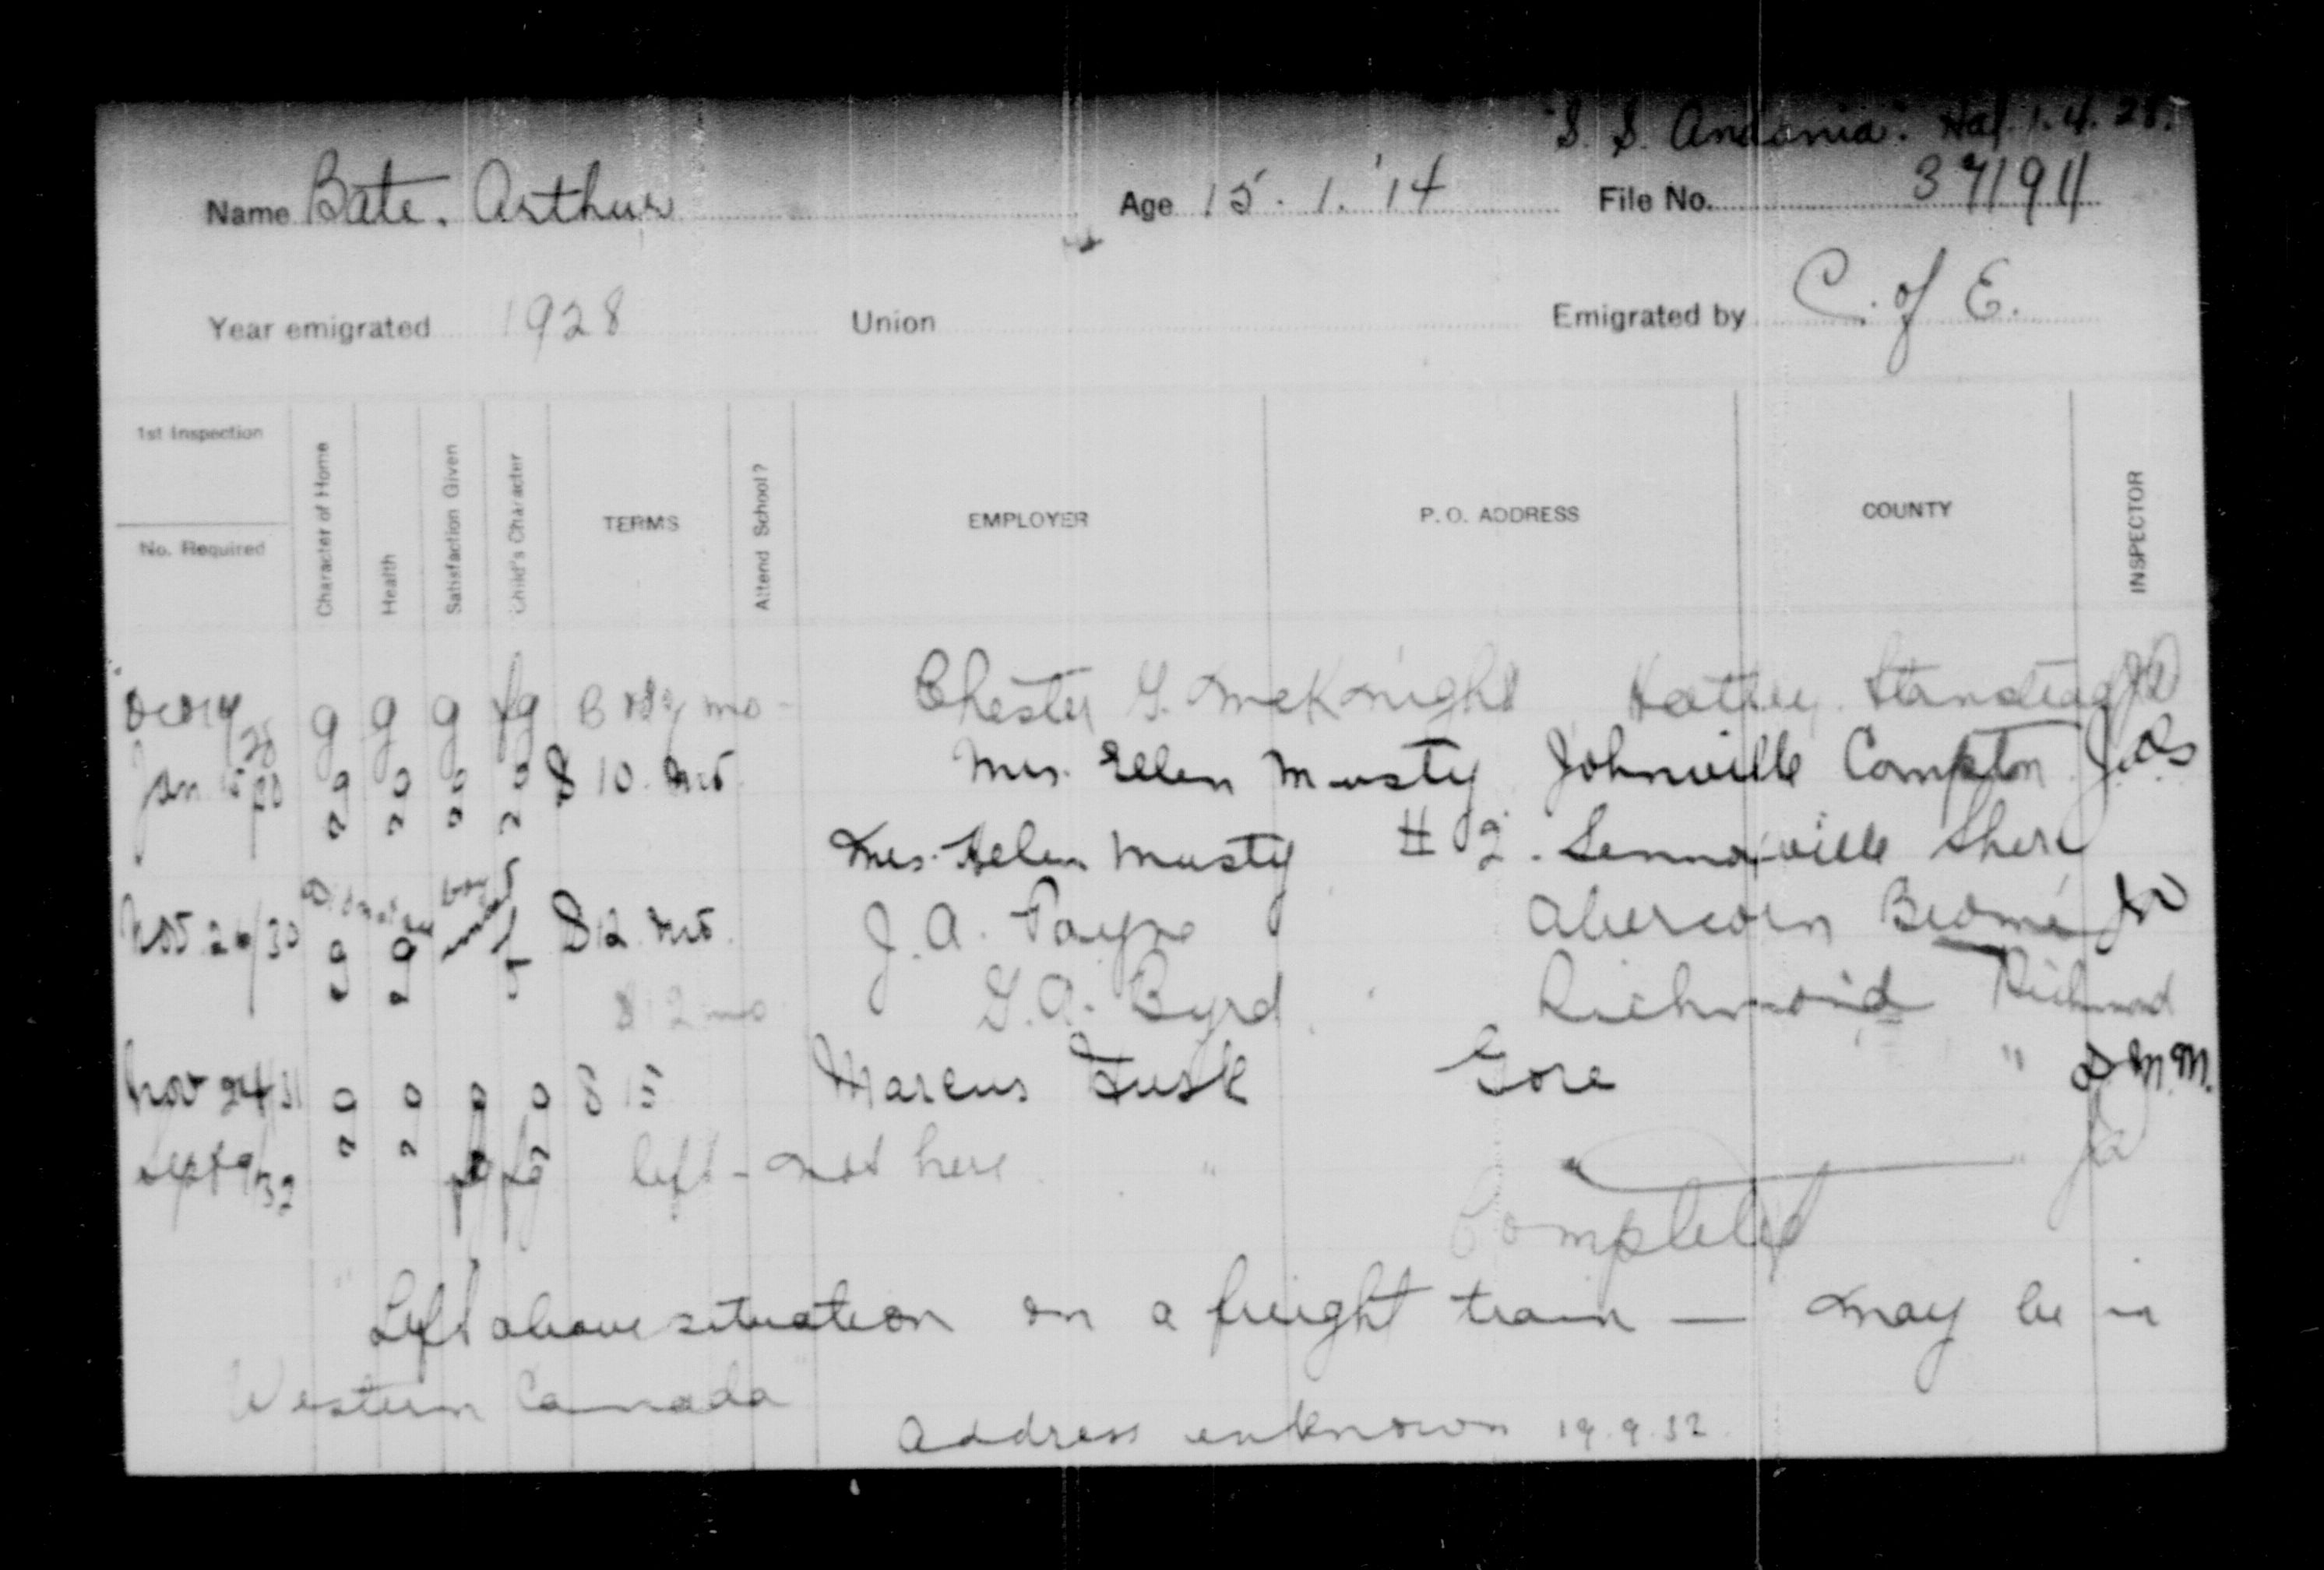 "S. S. Andania". Hal. 1.4.28.
Name Bate. Arthur Age 15.1.'14 File No. 371911
Year emigrated 1928 Union Emigrated by C. of E.
1st Inspection
No. Required
Character of Home
Health
Satisfaction Given
Child's Character
TERMS
Attend School?
EMPLOYER
P. O. ADDRESS
COUNTY
INSPECTOR
28 g g g fg mo - Chester G. McKnight Hatley.
Jan 15 g g g g $ 10. mo. Mrs. Ellen Musty Johnville Compton
Mrs. Helen Musty # 2. Lennoxville Sher
Nov 26/30 g g f $12. mo. J. A. Payne Abercorn Brome
$12 mo G. A. Byrd Richmond Richmond
Nov 24/31 g g g g $ 15 Marcus Lusk Gore " M.M.
Sept 9/32 fg fg left - not here " "
Completed
"Left above situation on a freight train — may be in
Western Canada"
Address unknown 19.9.32.